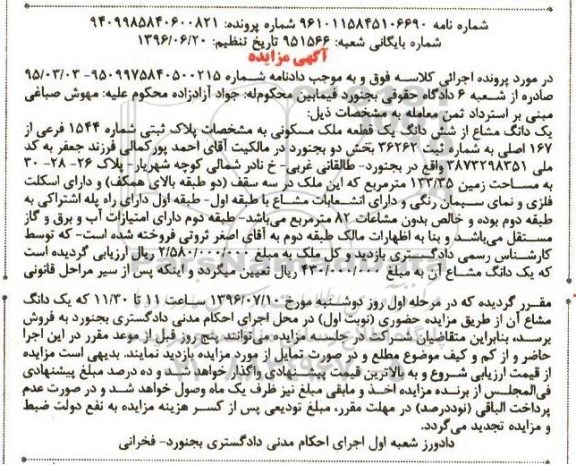 شماره نامه ۹۶۱۰۱۱۵۸۴۵۱۰۶۶۹۰ شماره پرونده: ۹۴۰۹۹۸۵۸۴۰۶۰۰۸۲۱
شماره بایگانی شعبه: ۹۵۱۵۶۶ تاریخ تنظیم: ۱۳۹۶/۰۶/۲۰
آگهی مزایده
در مورد پرونده اجرائی کلاسه فوق و به موجب دادنامه شماره ۹۵۰۹۹۷۵۸۴۰۵۰۰۲۱۵- ۹۵/۰۳/۰۳
صادره از شعبه ۶ دادگاه حقوقی بجنورد فیمابین محکوم‌له: جواد آزادزاده محکوم علیه: مهوش صباغی
مبنی بر استرداد ثمن معامله به مشخصات ذیل:
یک دانگ مشاع از شش دانگ یک قطعه ملک مسکونی به مشخصات پلاک ثبتی شماره ۱۵۴۴ فرعی از
۱۶۷ اصلی به شماره ثبت ۳۶۲۶۲ بخش دو بجنورد در مالکیت آقای احمد پورکمالی فرزند جعفر به کد
ملی ۳۸۷۳۲۹۸۳۵۱ واقع در بجنورد- طالقانی غربی- خ نادر شمالی کوچه شهریار- پلاک ۲۶- ۲۸- ۳۰
به مساحت زمین ۱۲۲/۳۵ مترمربع که این ملک در سه سقف (دو طبقه بالای همکف) و دارای اسکلت
فلزی و نمای سیمان رنگی و دارای انشعابات مشاع با طبقه اول- طبقه اول دارای راه پله اشتراکی به
طبقه دوم بوده و خالص بدون مشاعات ۸۲ مترمربع می‌باشد- طبقه دوم دارای امتیازات آب و برق و گاز
مستقل می‌باشد و بنا به اظهارات مالک طبقه دوم به آقای اصغر ثروتی فروخته شده است- که توسط
کارشناس رسمی دادگستری بازدید و کل ملک به مبلغ ۲/۵۸۰/۰۰۰/۰۰۰ ریال ارزیابی گردیده است
که یک دانگ مشاع آن به مبلغ ۴۳۰/۰۰۰/۰۰۰ ریال تعیین میگردد و اینکه پس از سیر مراحل قانونی
مقرر گردیده که در مرحله اول روز دوشنبه مورخ ۱۳۹۶/۰۷/۱۰ ساعت ۱۱ تا ۱۱/۳۰ که یک دانگ
مشاع آن از طریق مزایده حضوری (نوبت اول) در محل اجرای احکام مدنی دادگستری بجنورد به فروش
برسد، بنابراین متقاضیان شرکت در جلسه مزایده می‌توانند پنج روز قبل از موعد مقرر در این اجرا
حاضر و از کم و کیف موضوع مطلع و در صورت تمایل از مورد مزایده بازدید نمایند. بدیهی است مزایده
از قیمت ارزیابی شروع و به بالاترین قیمت پیشنهادی واگذار خواهد شد و ده درصد مبلغ پیشنهادی
فی‌المجلس از برنده مزایده اخذ و مابقی مبلغ نیز ظرف یک ماه وصول خواهد شد و در صورت عدم
پرداخت الباقی (نوددرصد) در مهلت مقرر، مبلغ تودیعی پس از کسر هزینه مزایده به نفع دولت ضبط
و مزایده تجدید می‌گردد.
دادورز شعبه اول اجرای احکام مدنی دادگستری بجنورد- فخرانی